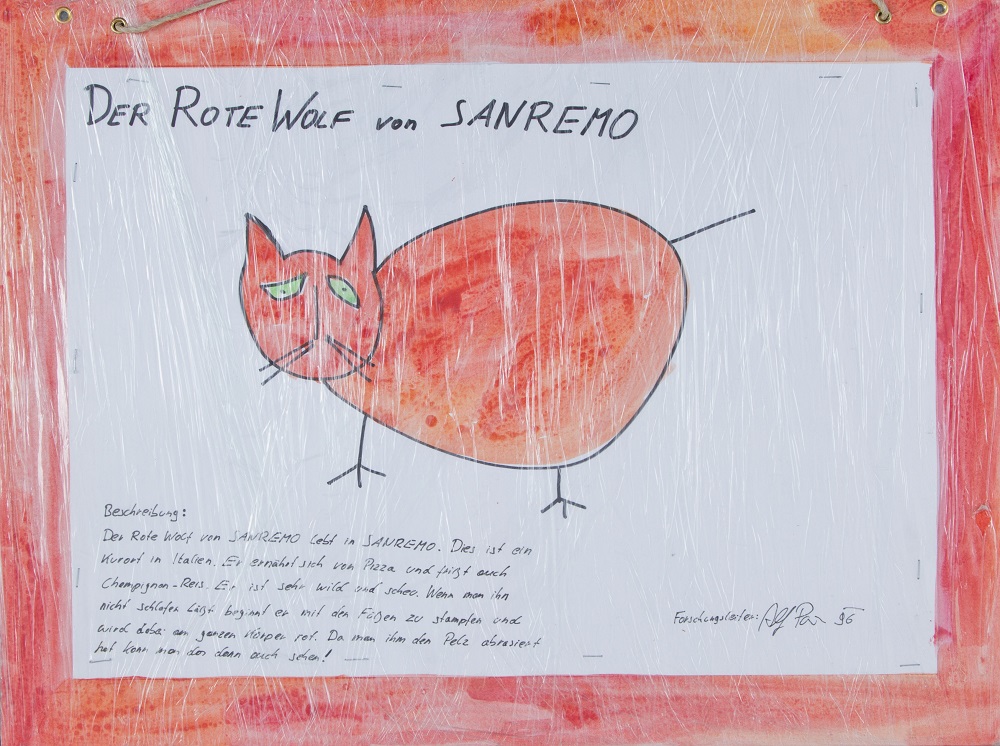 DER ROTE WOLF von SANREMO
Beschreibung:
Der Rote Wolf von SANREMO lebt in SANREMO. Dies ist ein
Kurort in Italien. Er ernährt sich von Pizza und frißt auch
Champignon-Reis. Er ist sehr wild und scheu. Wenn man ihn
nicht schlafen läßt beginnt er mit den Füßen zu stampfen und
wird dabei am ganzen Körper rot. Da man ihm den Pelz abrasiert
hat kann man das dann auch sehen!
Forschungsleiter: 96